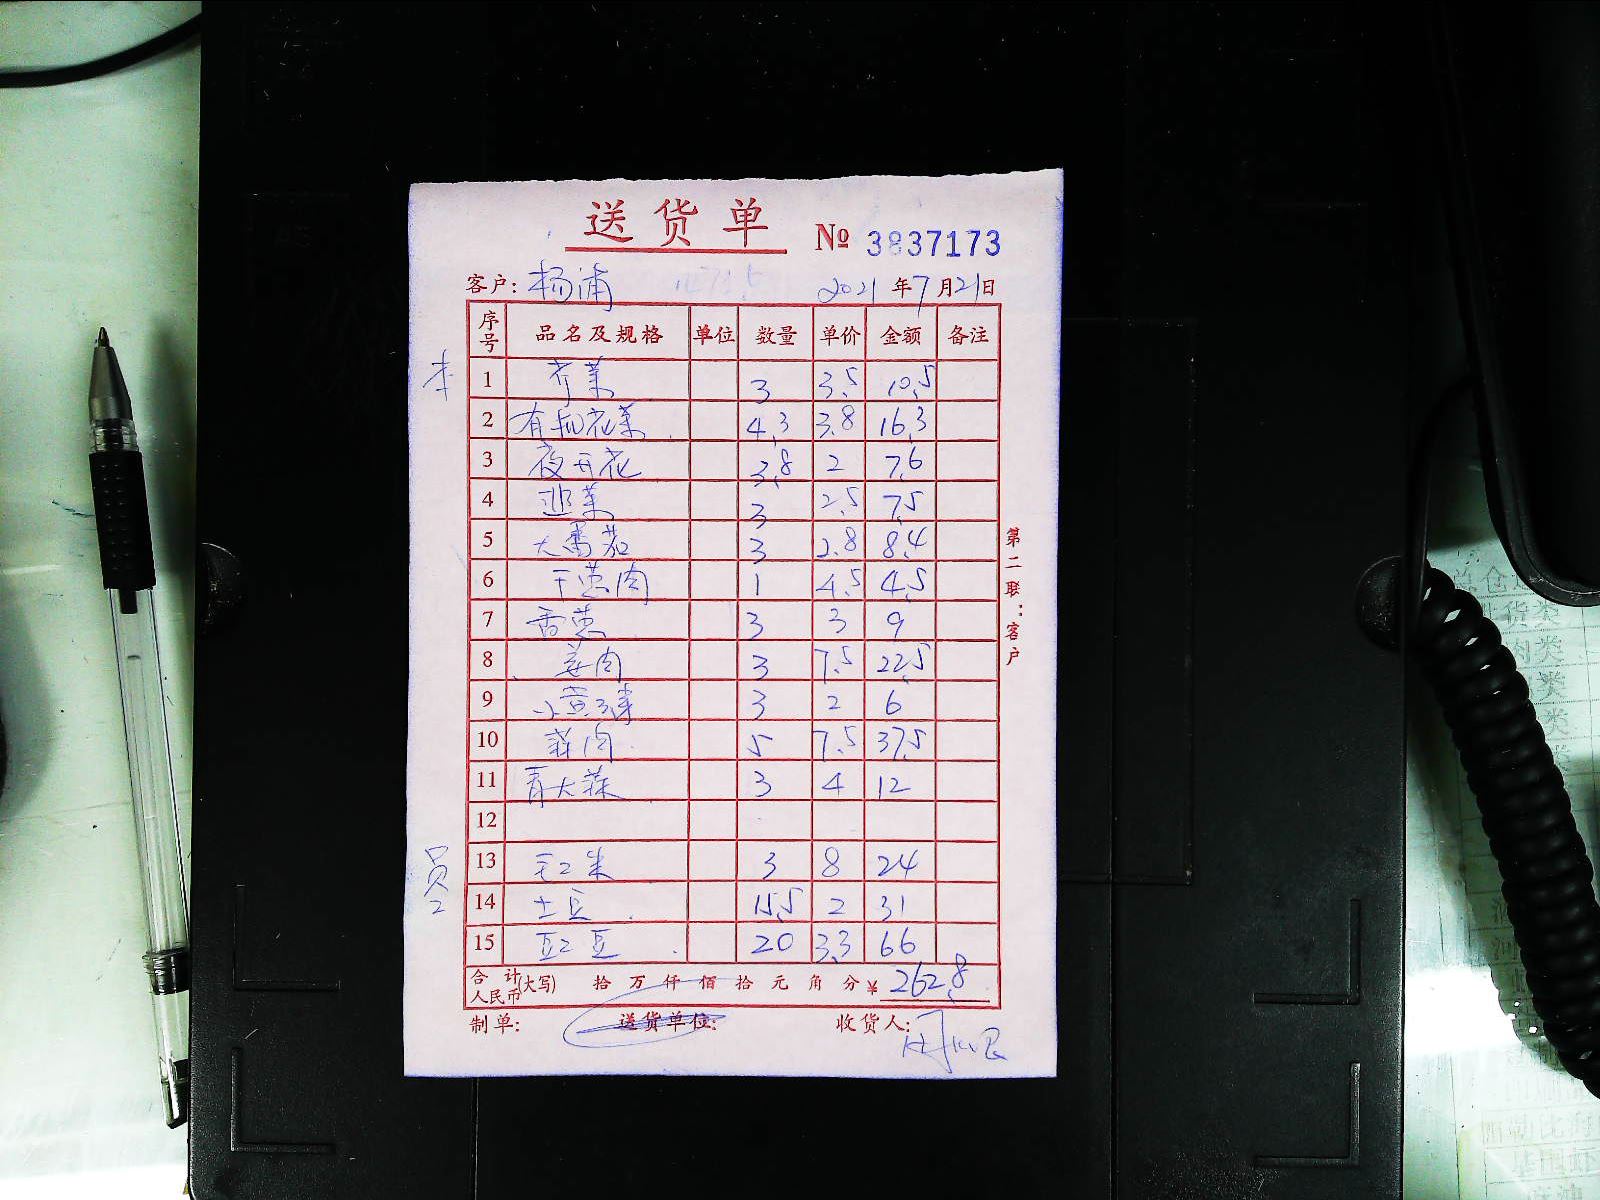 送货单 № 3837173
客户: 杨浦 2021年7月21日
序号 品名及规格 单位 数量 单价 金额 备注
本
1 芹菜 3 3.5 10.5
2 有机花菜 4.3 3.8 16.3
3 夜开花 3.8 2 7.6
4 韭菜 3 2.5 7.5
5 大番茄 3 2.8 8.4
6 干葱肉 1 4.5 4.5
7 香葱 3 3 9
8 姜肉 3 7.5 22.5
9 小黄 3 2 6
10 蒜肉 5 7.5 37.5
11 青大蒜 3 4 12
12
员2
13 毛2米 3 8 24
14 土豆 15.5 2 31
15 豇2豆 20 3.3 66
合计人民币(大写) 拾 万 仟 佰 拾 元 角 分 ¥ 262.8
制单: 送货单位: 收货人:
第二联:客户
货类
肉类
类
类
类